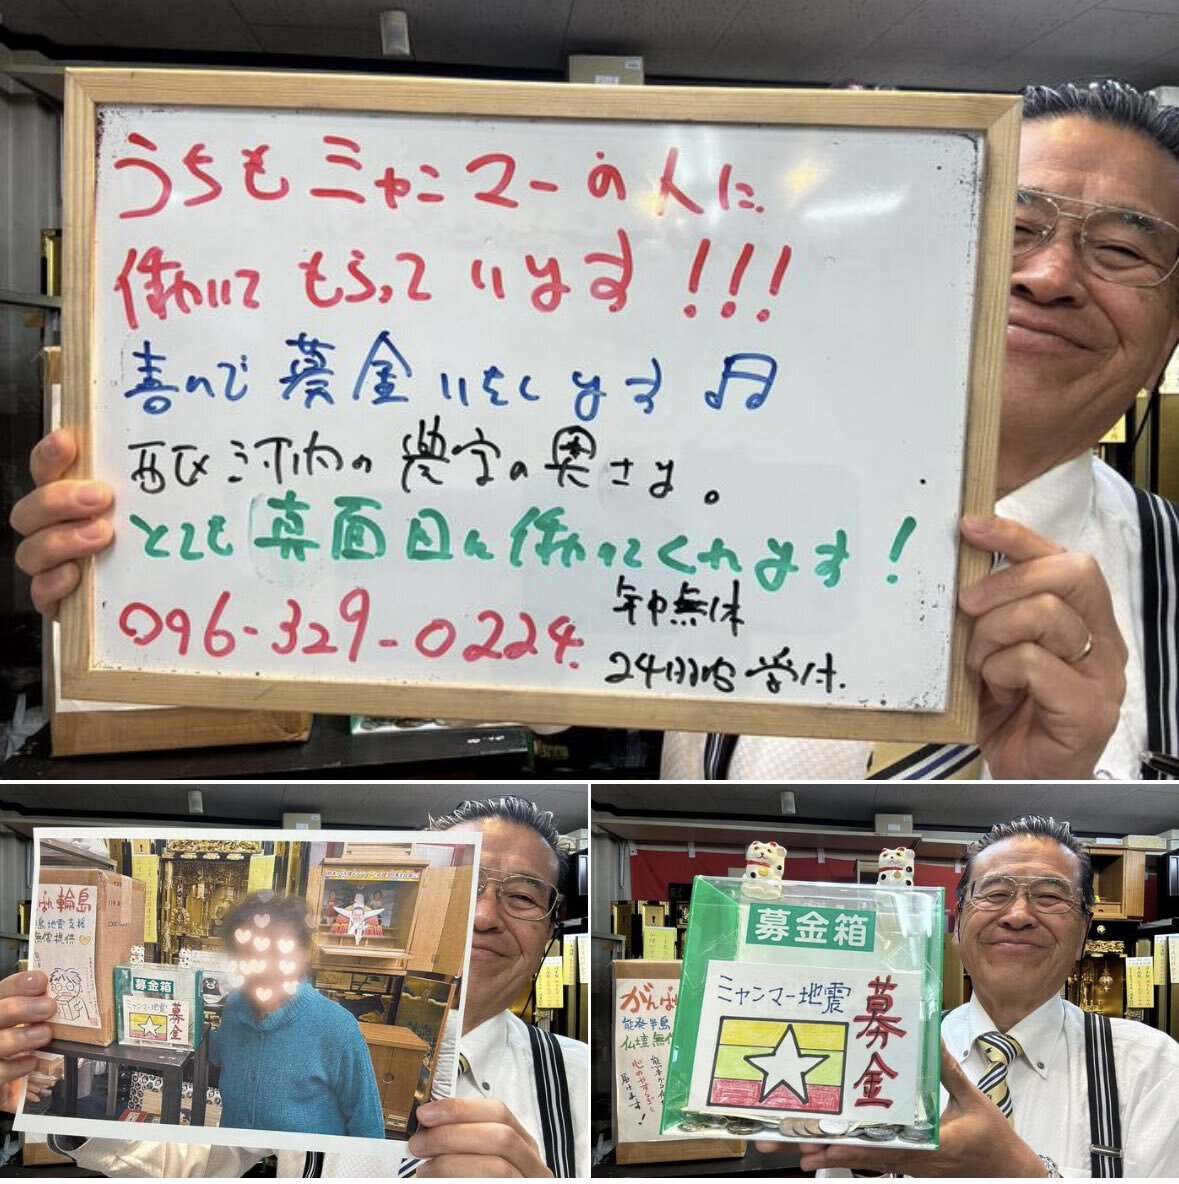 うちもミャンマーの人に
働いてもらっています!!!
喜んで募金いたします♫
西区河内の農家の奥さま。
とても真面目に働いてくれます!
096-329-0224
年中無休
24時間受付.
輪島
地震支援
無償提供
募金箱
ミャンマー
募金
募金箱
ミャンマー地震
募金
がんば
能登半島
仏壇無
熊本から
心のやすらぎを
届けます!